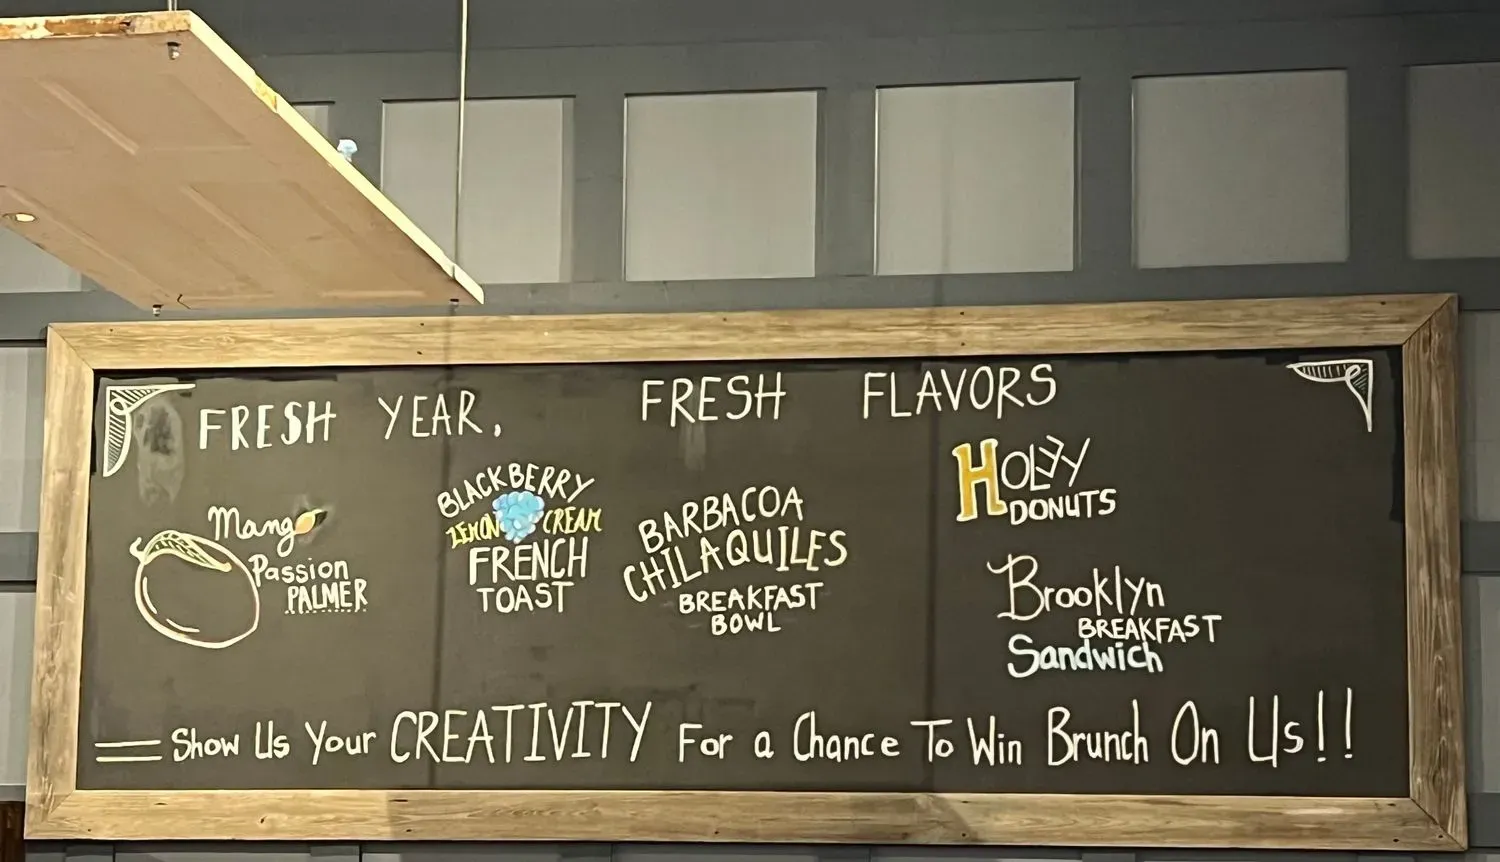 FRESH YEAR, FRESH FLAVORS
Mango
Passion
PALMER
BLACKBERRY
LEMON CREAM
FRENCH
TOAST
BARBACOA
CHILAQUILES
BREAKFAST
BOWL
HOLEY
DONUTS
Brooklyn
BREAKFAST
Sandwich
Show Us Your CREATIVITY For a Chance To Win Brunch On Us!!